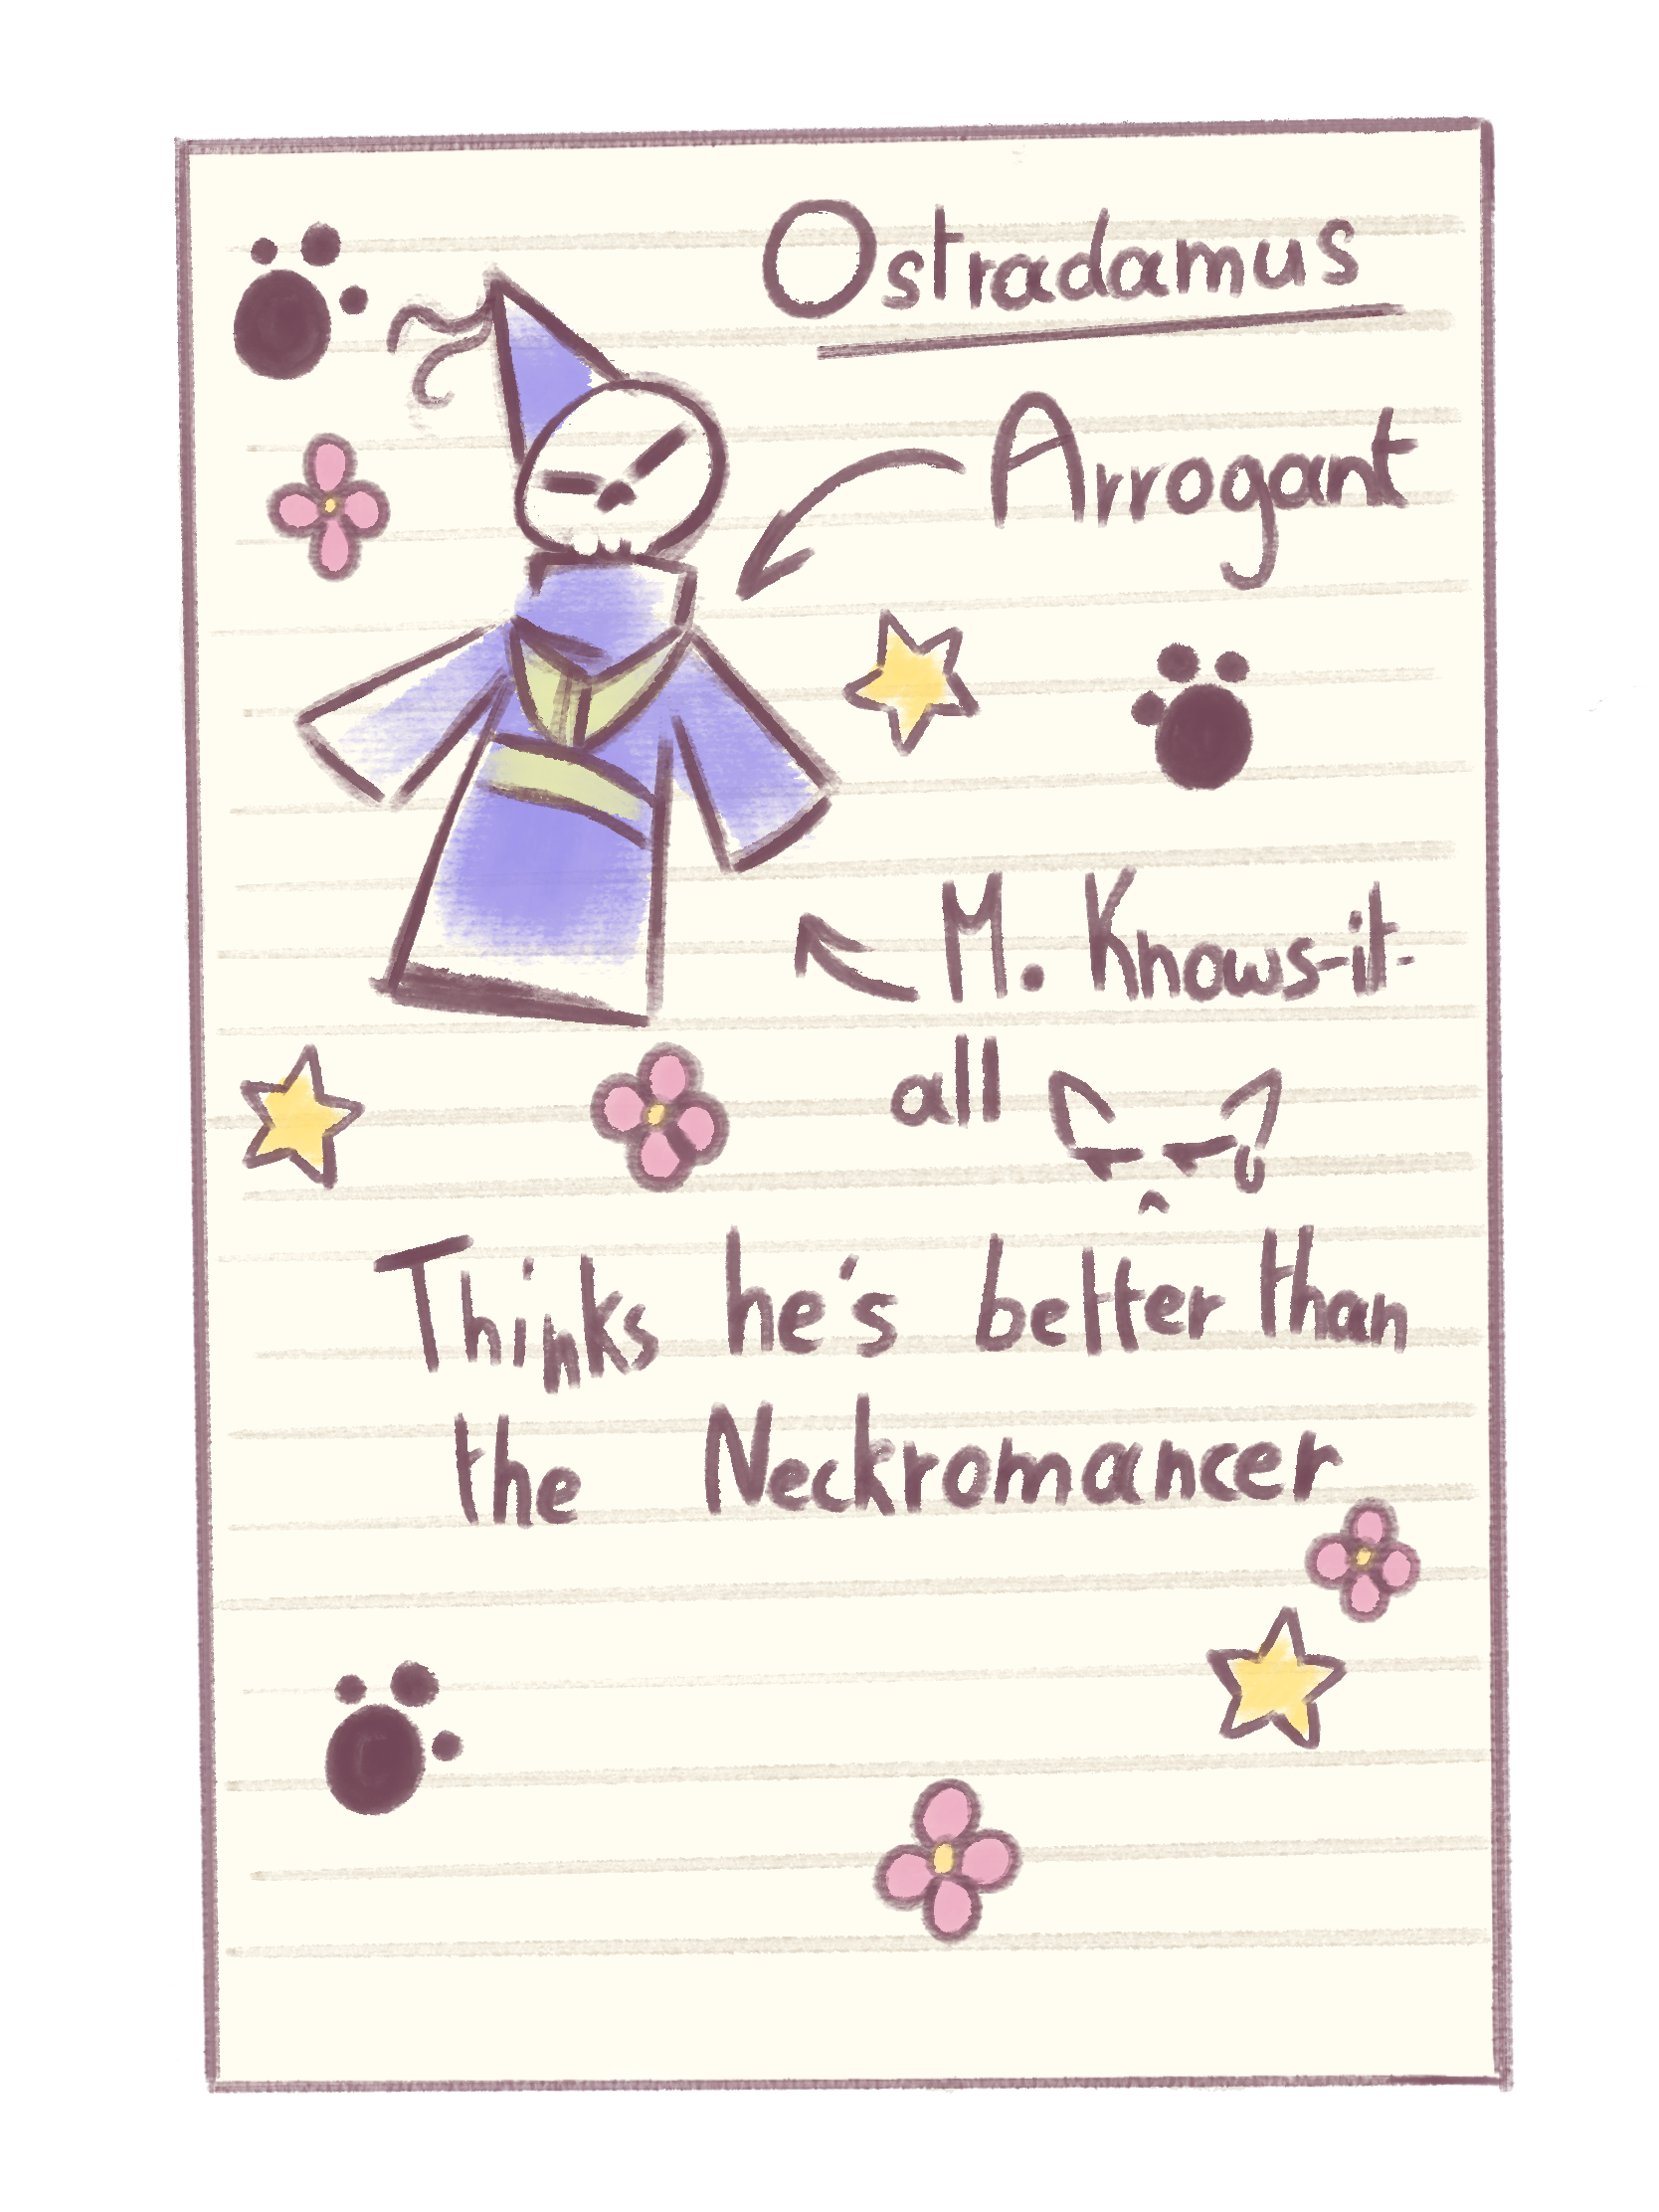 Ostradamus
Arrogant
M. Knows-it-
all
Thinks he's better than
the Neckromancer